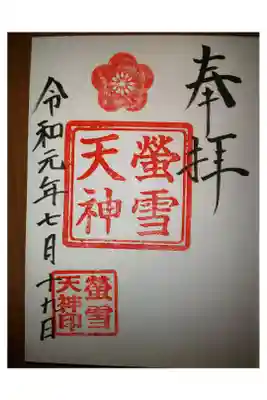 奉拝
螢雪
天神
令和元年七月十九日
螢雪
天神印